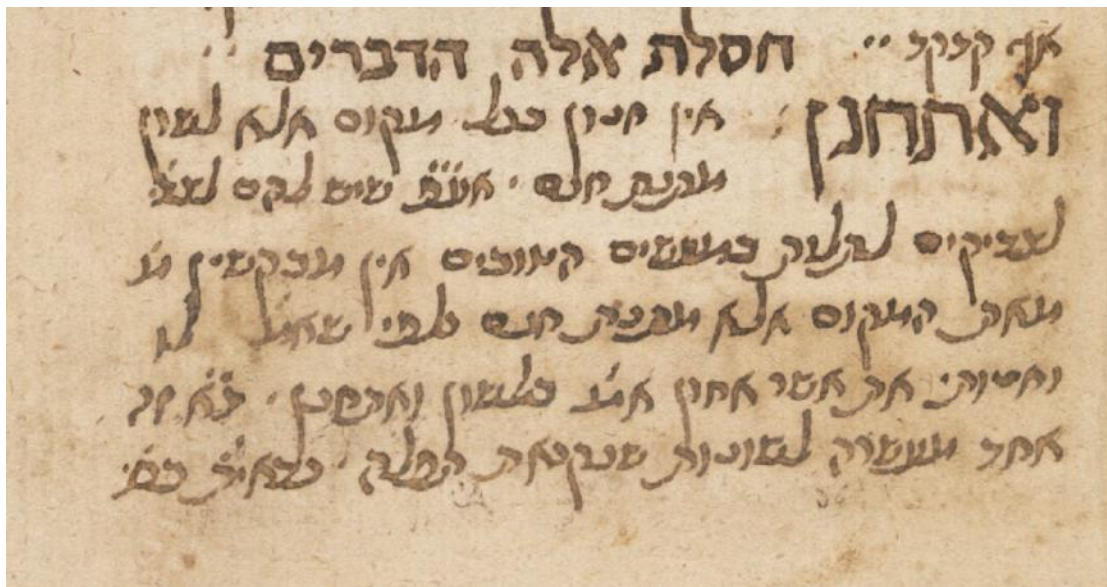 אף חסלת אלה הדברים
ואתחנן אין חנון בכל מקום אלא לשון
מתנת חנם · אע״פ שיש להם לצד'
לצדיקים לתלות במעשים הטובים אין מבקשין מ'
מאת המקום אלא מתנת חנם לפי שאמ' לו
וחנותי את אשר אחון אמ' בלשון ואתחנן · ד״א זה
אחד מעשרה לשונות שנקראת תפלה · כדאית' בס'